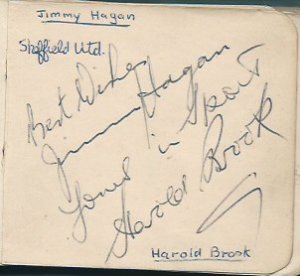 Jimmy Hagan
Sheffield Utd.
Best Wishes
Jimmy Hagan
Yours in Sport
Harold Brook
Harold Brook